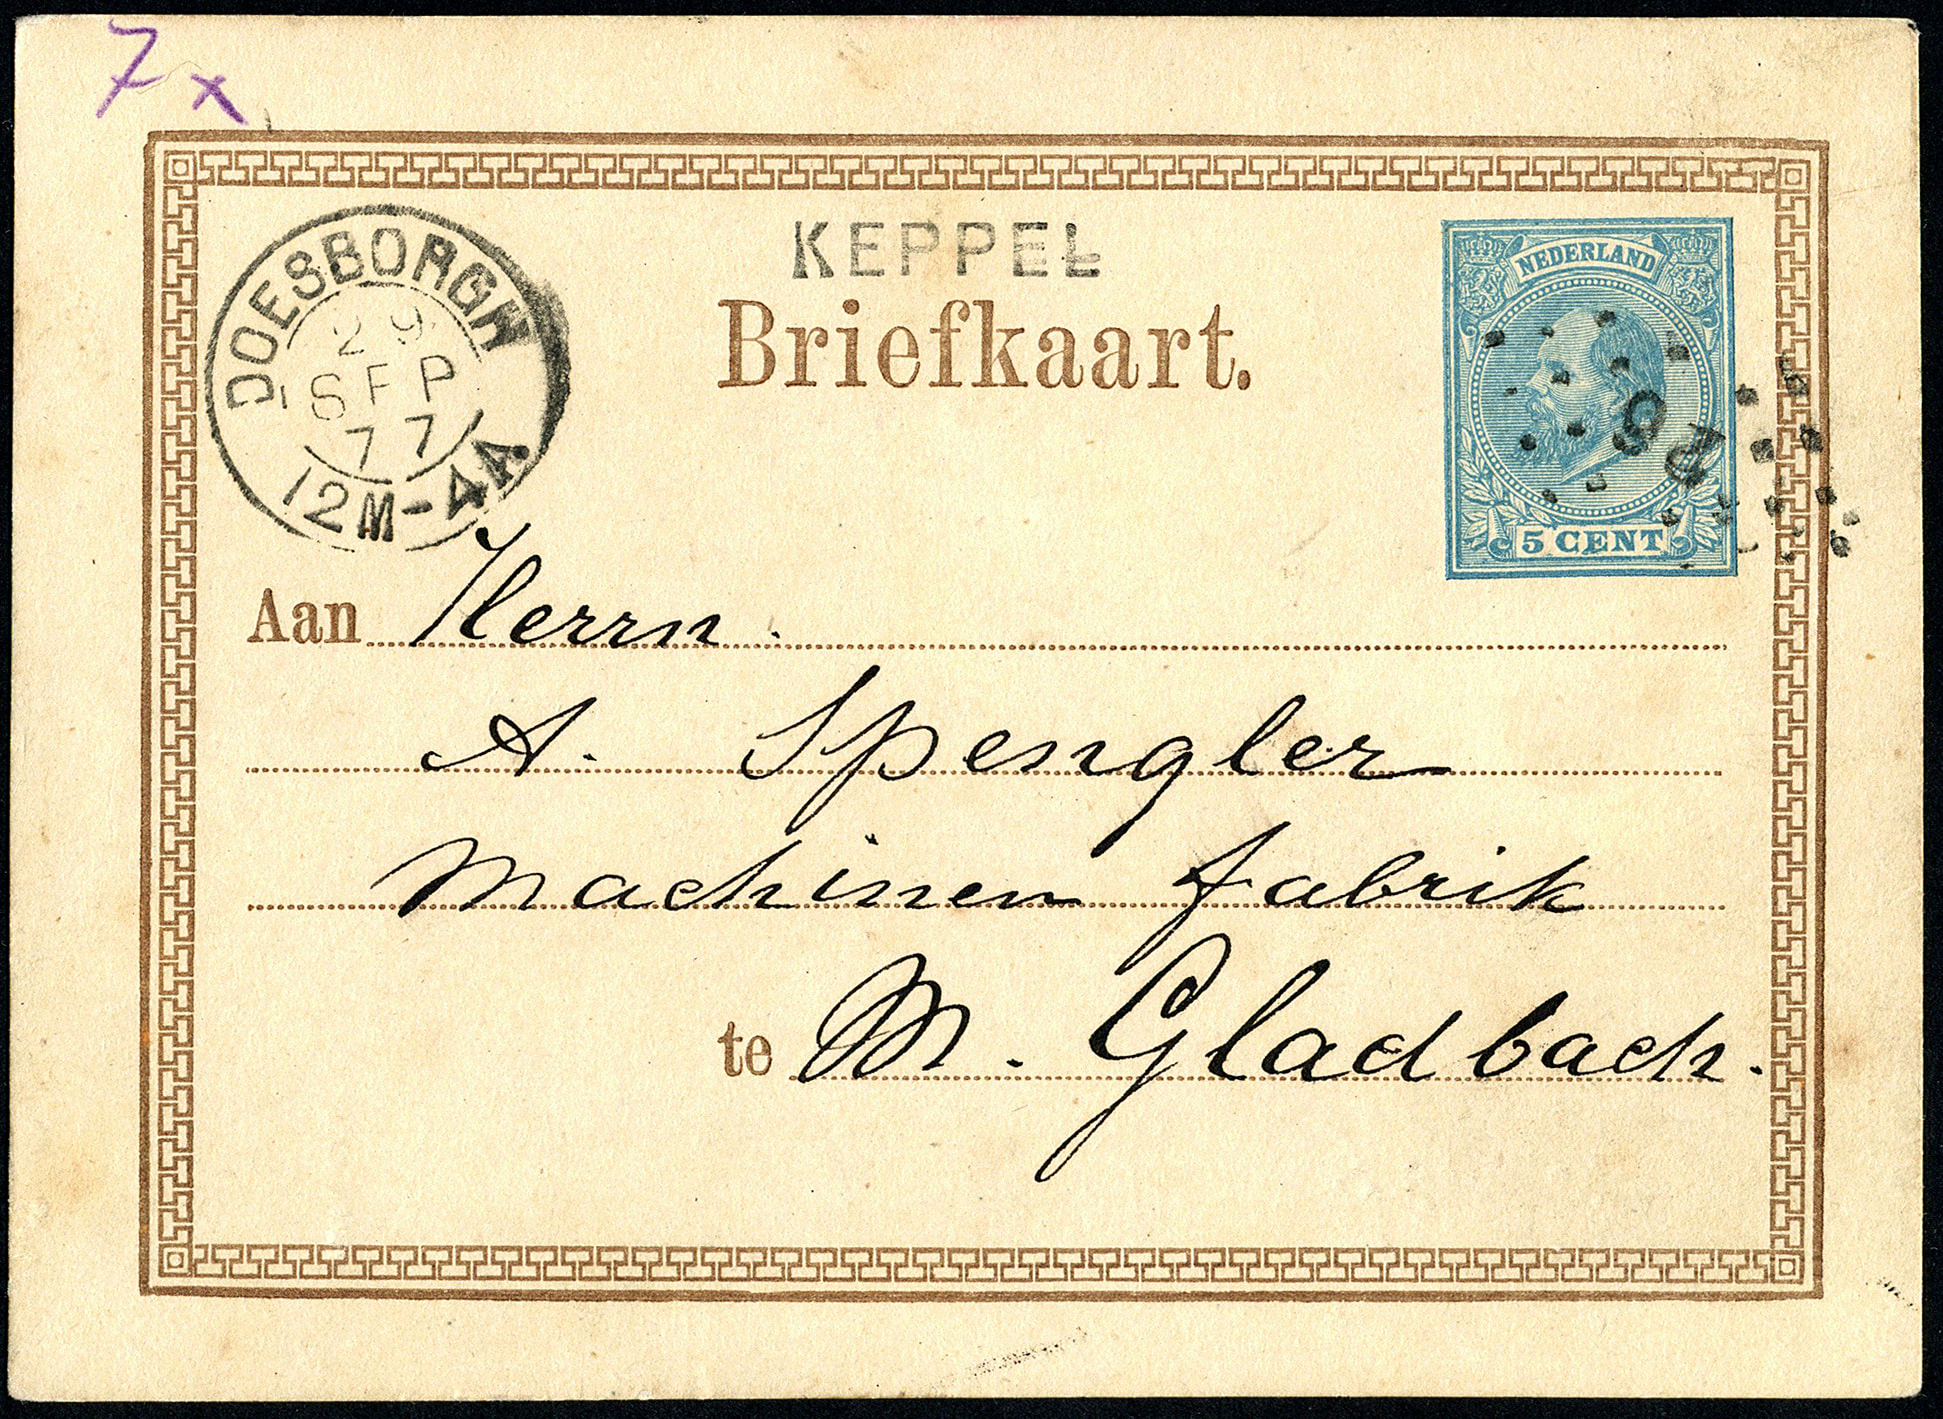 7x
KEPPEL
DOESBORGH
29
SEP
77
12M-4A
Briefkaart.
NEDERLAND
5 CENT
Aan Herrn.
A. Spengler
Machinen fabrik
te M. Gladbach.